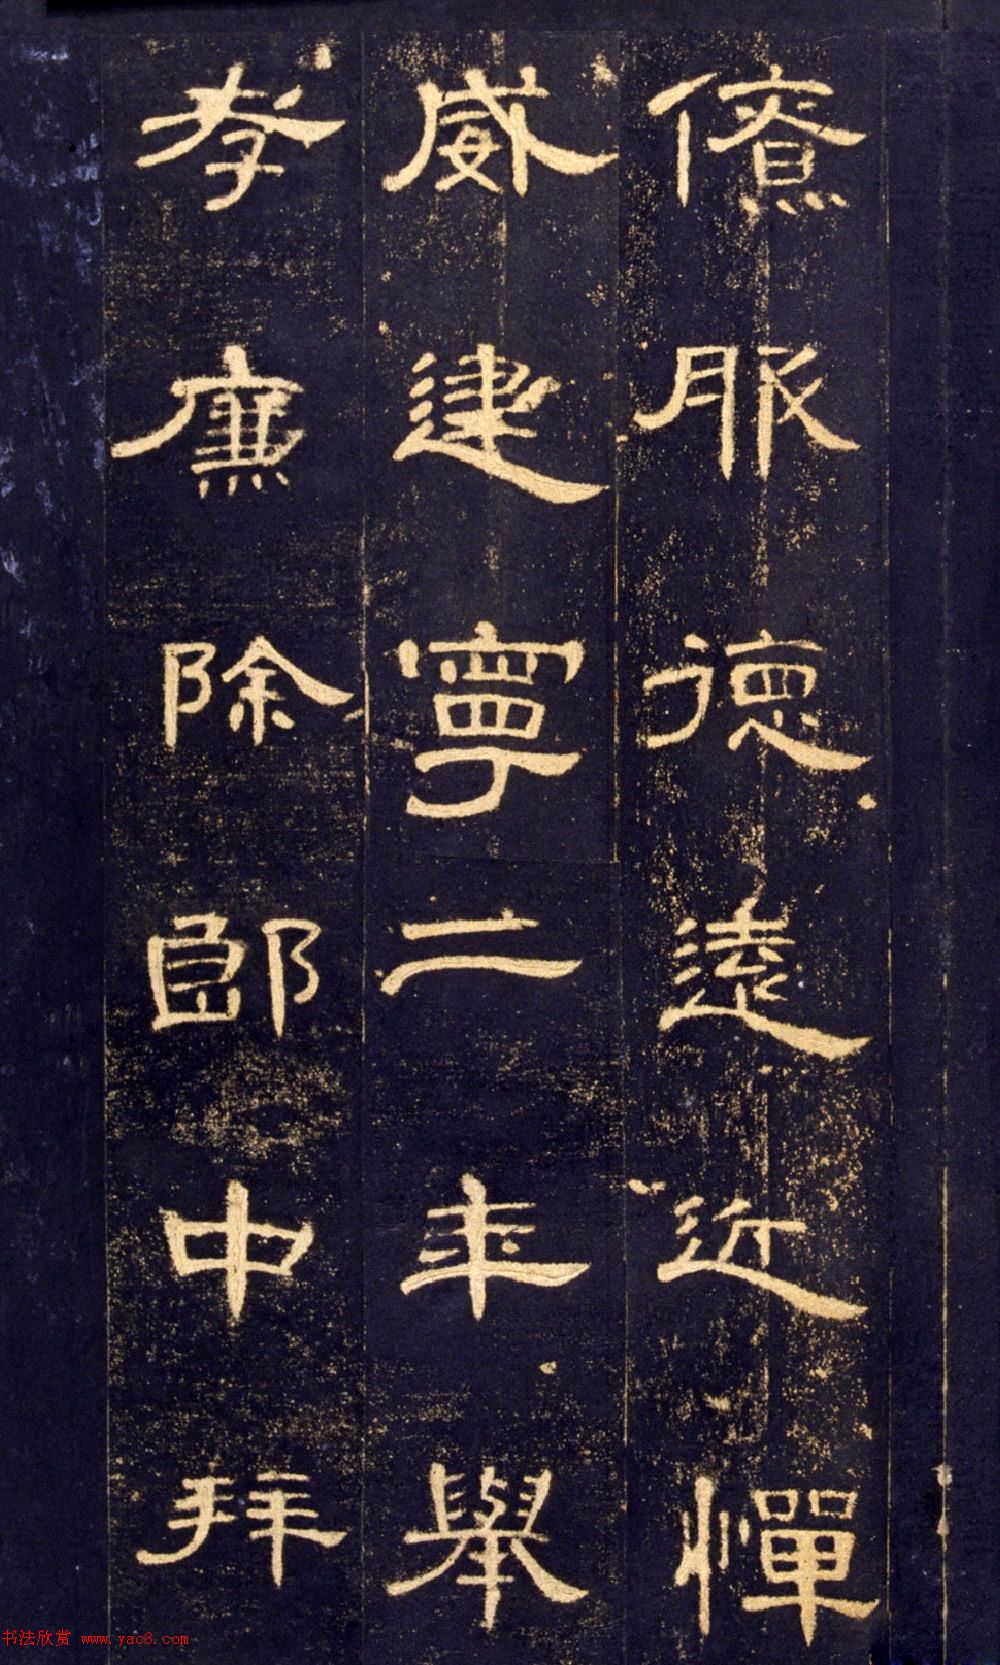 僚服德遠近憚
威建寧二年舉
孝廉除郎中拜
书法欣赏 www.yac8.com